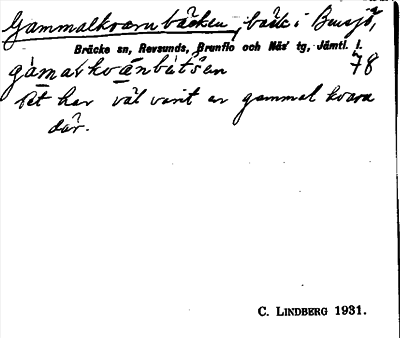 Gammalkvarnbäcken, bäck i Bensjö,
Bräcke sn, Revsunds, Brunflo och Näs' tg, Jämtl. l.
gàmalkvánbét̀sen 78
Det har väl varit en gammal kvarn
där.
C. LINDBERG 1931.